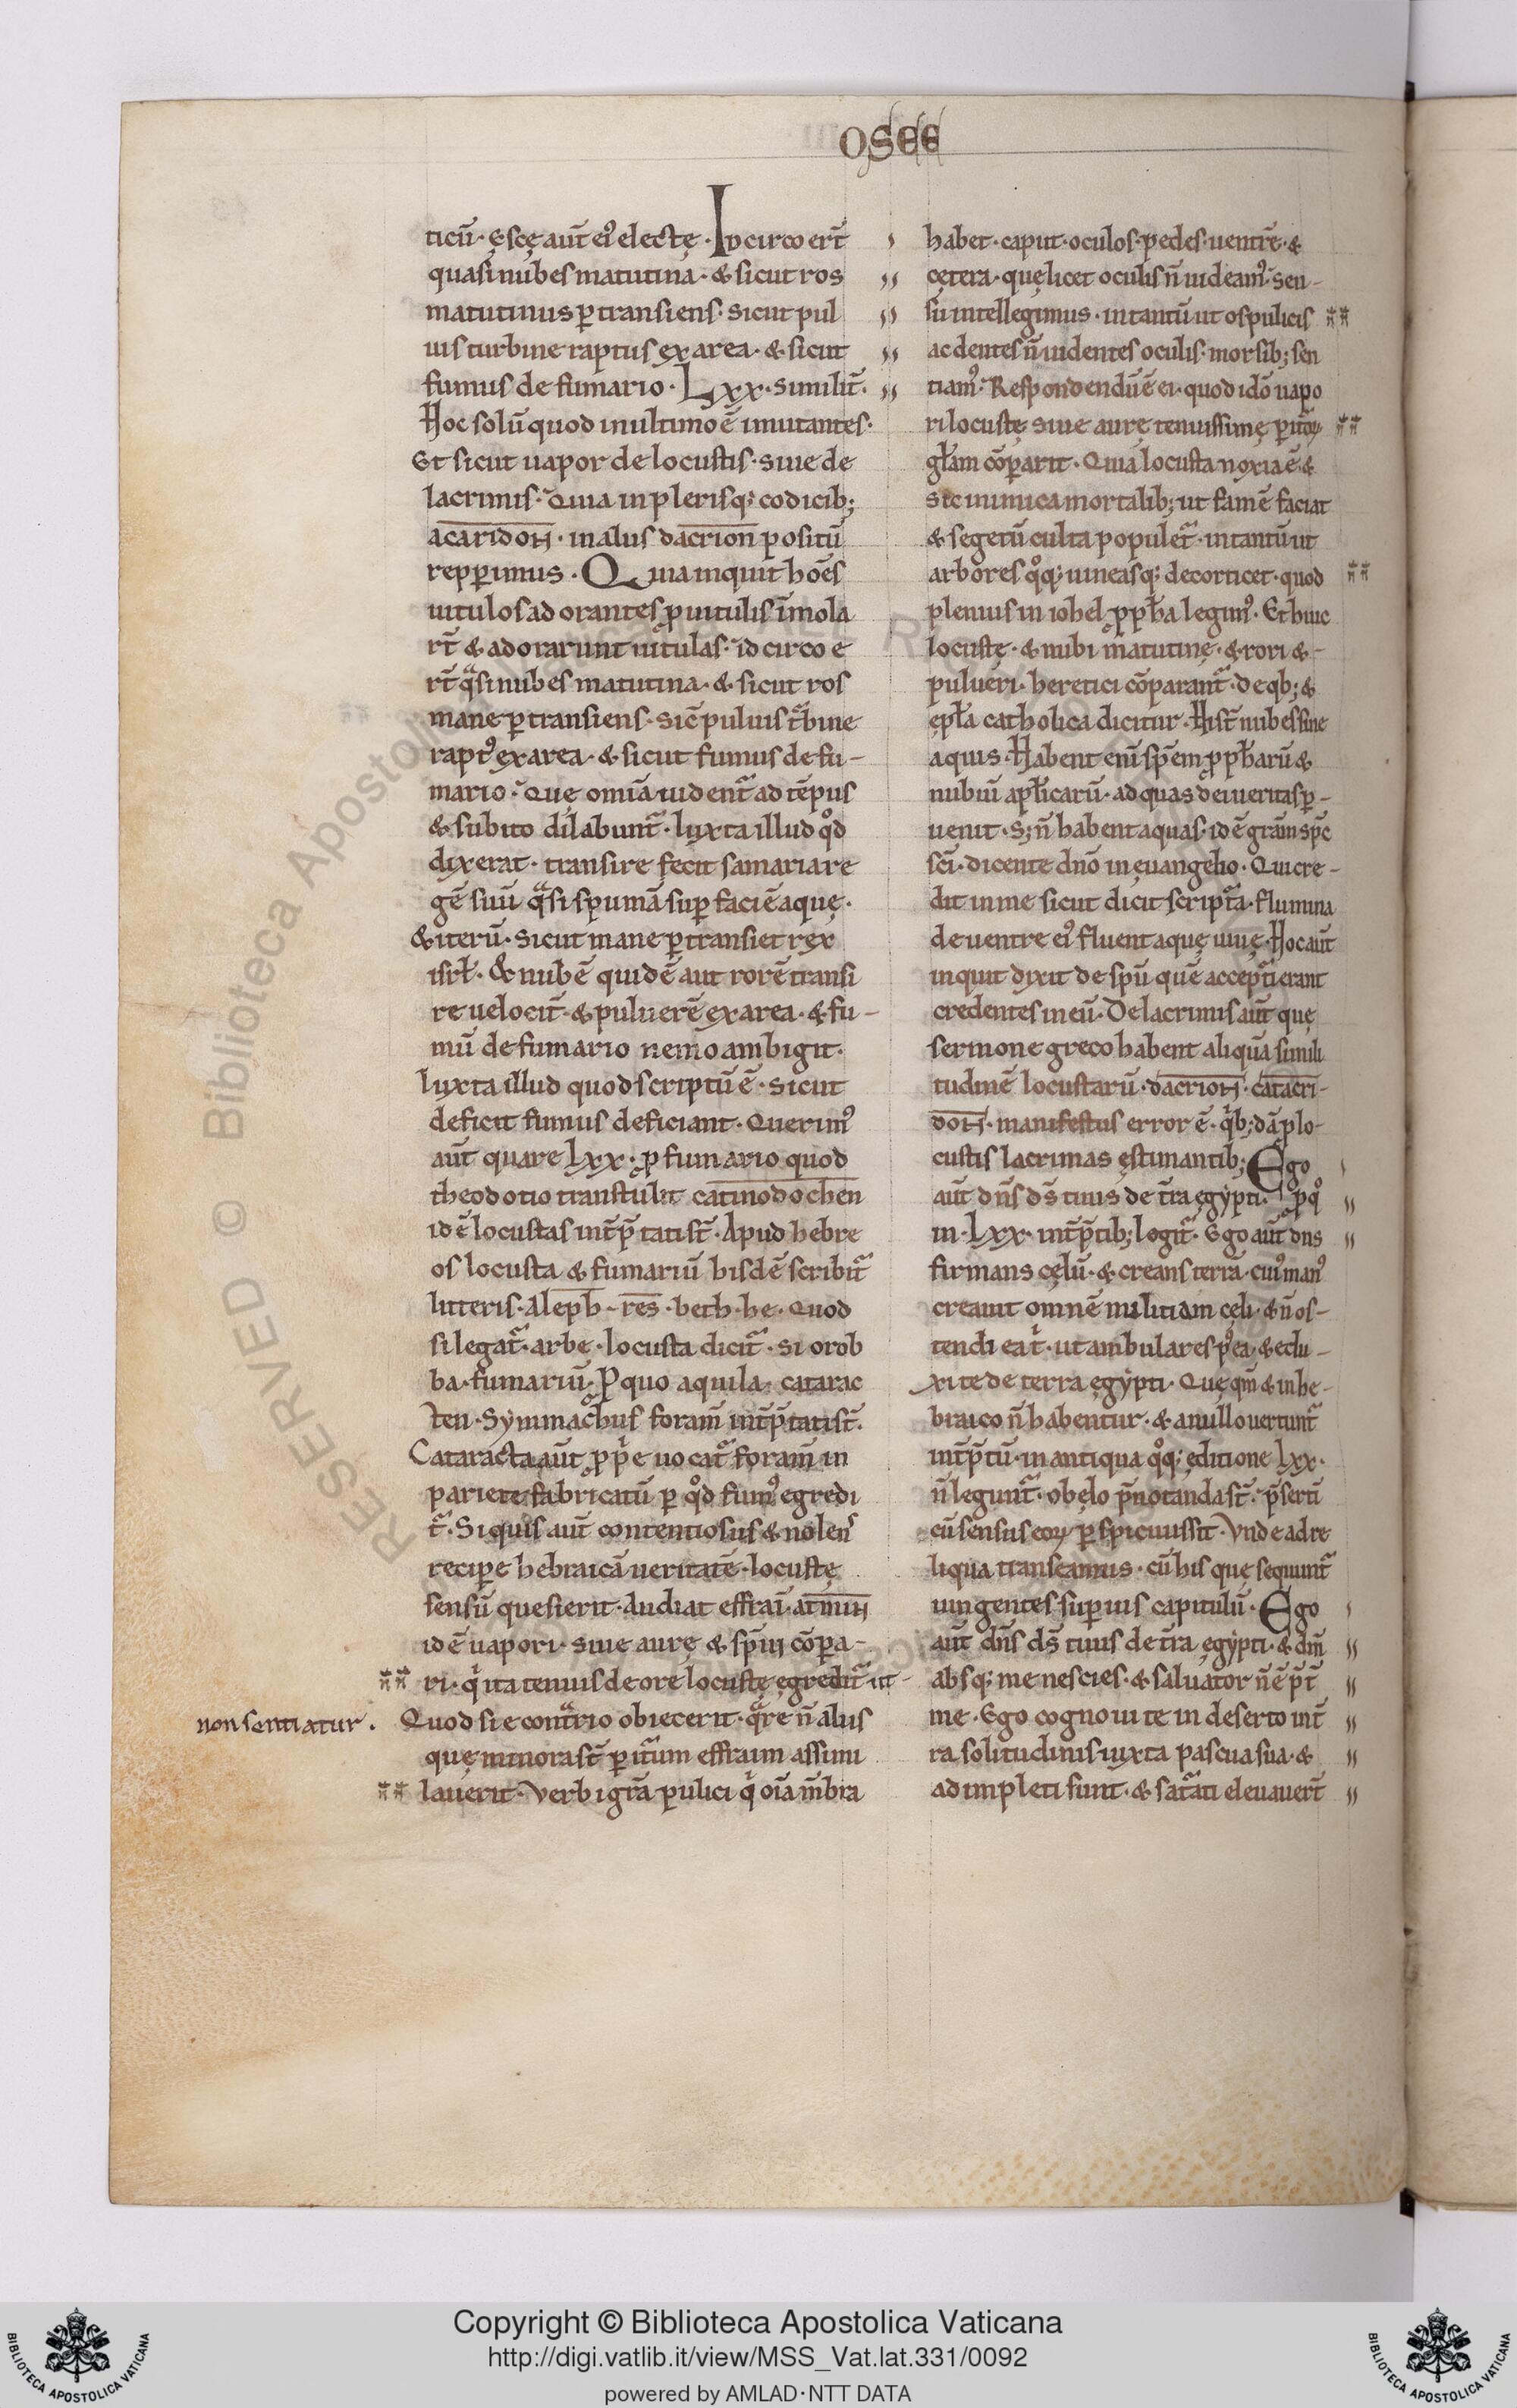 OSEE
ticū· ęscę aūt ei᾽ electę· Idcirco er̄t
quasi nubes matutina· & sicut ros
matutinus ꝑtransiens· sicut pul
uis turbine raptus ex area· & sicut
fumus de fumario· Lxx· similit̄·
Hoc solū quod in ultimo ē imutantes·
Et sicut uapor de locustis· siue de
lacrimis· Quia in plerisq; codicib;
acaridon· in alus dacrion positū
repꝑimus· Quia inquit hoēs
uitulos adorantes ꝓ uitulis īmola
rt̄ & adorarunt uitulas· idcirco e
rt̄ qᵃsi nubes matutina· & sicut ros
mane ꝑtransiens· sic̄ puluis t̄bine
rapt᾽ ex area· & sicut fumus de fu-
mario· Quę omīa uidentᷓ ad tēpus
& subito dilabuntᷓ· Iuxta illud qᵒd
dixerat· transire fecit samaria re
gē suū qᵃsi spumā suꝑ faciē aquę·
& iterū· sicut mane ꝑtransiet rex
isrł· & nubē quidē aut rorē transi
re uelocit̄· & puluerē ex area· & fu-
mū de fumario nemo ambigit·
Iuxta illud quod scriptū ē· sicut
deficit fumus deficiant· Querim᾽
aūt quare Lxx· ꝓ fumario quod
theodotio transtulit catinodochen
idē locustas int̄p̄tati st̄· Apud hebre
os locusta & fumariū hisdē scribitᷓ
litteris· Aleph· res· beth· he· Quod
si legatᷓ· arbe· locusta dicitᷓ· si orob
ba· fumariū· ꝓ quo aquila· catarac
ten· Symmachus foram̄ int̄p̄tati st̄·
Cataracta aūt ꝓpⁱe uocatᷓ foram̄ in
pariete fabricatū ꝑ qᵒd fum᾽ egredi
tᷓ· Si quis aūt contentiosus & nolens
reciꝑe hebraicā ueritatē· locustę
sensū quesierit· Audiat effraī· atmin
idē uapori· siue aurę & sp̄ui cōpa-
ri· qⁱ ita tenuis de ore locustę egreditᷓ ut
non sentiatur·
Quod si e contᷓrio obiecerit· qᵃre n̄ alus
quę minora st̄ ꝑ it̄um effraim assimi
lauerit· Verbi grā pulici qⁱ oīa m̄bra
habet· caput· oculos· pedes· uentrē· &
cętera· quę licet oculis n̄ uideam᾽· sen-
su intellegimus· in tantū ut os pulicis
ac dentes n̄ uidentes oculis· morsib; sen
tiam᾽· Respondendū ē ei· quod idō uapo
ri locustę siue aurę tenuissimę ꝑitoꝝ
głam cōparit· Quia locusta noxia ē· &
sic inimica mortalib; ut famē faciat
& segetū culta populetᷓ· in tantū ut
arbores qᵒq; uineasq; decorticet· quod
plenius in iohel ꝓpħa legim᾽· Et huic
locustę· & nubi matutinę· & rori &-
pulueri· heretici cōparantᷓ· de qb; &
ępła catholica dicitur· Hi st̄ nubes sine
aquis· Habent enī sp̄em ꝓpħarū &
nubiū apłicarū· ad quas dei ueritas ꝑ-
uenit· S; n̄ habent aquas· id ē grām sp̄c
scī· dicente dn̄o in euangelio· Qui cre-
dit in me sicut dicit scriptᷓa· flumina
de uentre ei᾽ fluent aquę uiuę· Hoc aūt
inquit dixit de spū quē acceptᷓi erant
credentes in eū· De lacrimis aūt quę
sermone greco habent aliquā simili
tudinē locustarū· dacrion· catacri-
don· manifestus error ē· qⁱb; dā ꝓ lo-
custis lacrimas ęstimantib; Ego
aūt dn̄s ds̄ tuus de t̄ra ęgypti· ꝓ qᵒ
in· Lxx· int̄p̄tib; legitᷓ· Ego aūt dns
firmans cęlū· & creans terrā· cui᾽ man᾽
creauit omnē militiam cęli· & n̄ os-
tendi ea tⁱ· ut ambulares p᾽ ea· & edu-
xi te de terra ęgypti· Quę qm̄ & in he-
braico n̄ habentur· & a nullo uertuntᷓ
int̄p̄tū· in antiqua qᵒq; ęditione Lxx·
n̄ leguntᷓ· obęlo p̄notanda st̄· p̄serti
cū sensus eoꝝ ꝑspicuus sit· Vnde ad re
liqua transeamus· cū his quę sequuntᷓ
iungentes suꝑius capitulū· Ego
aūt dn̄s ds̄ tuus de t̄ra ęgypti· & dm̄
absq; me nescies· & saluator n̄ ē p̄t̄
me· Ego cognoui te in deserto int̄
ra solitudinis iuxta pascua sua· &
adimpleti sunt· & satᷓati eleuauer̄t
RESERVED © Biblioteca Apostolica Vaticana
Copyright © Biblioteca Apostolica Vaticana
http://digi.vatlib.it/view/MSS_Vat.lat.331/0092
powered by AMLAD·NTT DATA
BIBLIOTECA APOSTOLICA VATICANA
BIBLIOTECA APOSTOLICA VATICANA